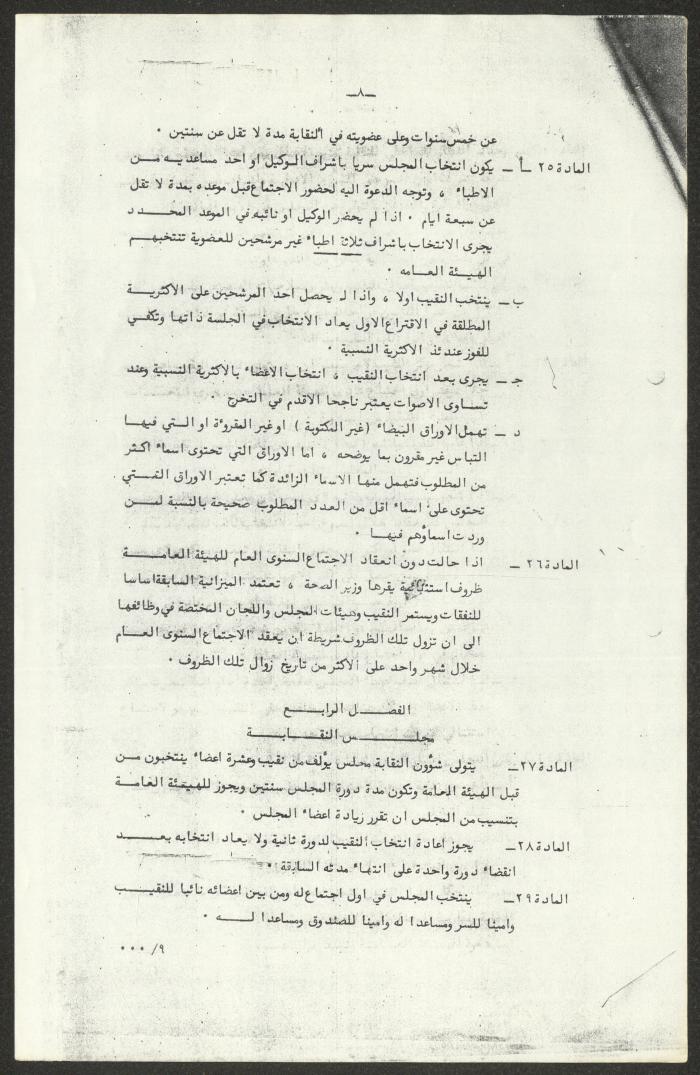 ـ٨ـ
عن خمس سنوات وعلى عضويته في النقابة مدة لا تقل عن سنتين .
المادة ٢٥ ـ أ ـ يكون انتخاب المجلس سريا باشراف الوكيل او احد مساعديه من
الاطباء ، وتوجه الدعوة اليه لحضور الاجتماع قبل موعده بمدة لا تقل
عن سبعة ايام . اذا لم يحضر الوكيل او نائبه في الموعد المحدد
يجرى الانتخاب باشراف ثلاثة اطباء غير مرشحين للعضوية تنتخبهم
الهيئة العامه .
ب ـ ينتخب النقيب اولا ، واذا لم يحصل احد المرشحين على الاكثرية
المطلقة في الاقتراع الاول يعاد الانتخاب في الجلسة ذاتها وتكفي
للفوز عندئذ الاكثرية النسبية .
جـ ـ يجرى بعد انتخاب النقيب ، انتخاب الاعضاء بالاكثرية النسبية وعند
تساوى الاصوات يعتبر ناجحا الاقدم في التخرج .
د ـ تهمل الاوراق البيضاء (غير المكتوبة ) او غير المقروءة او التي فيها
التباس غير مقرون بما يوضحه ، اما الاوراق التي تحتوى اسماء اكثر
من المطلوب فتهمل منها الاسماء الزائدة كما تعتبر الاوراق التي
تحتوى على اسماء اقل من العدد المطلوب صحيحة بالنسبة لمن
وردت اسماؤهم فيها .
المادة ٢٦ ـ اذا حالت دون انعقاد الاجتماع السنوى العام للهيئة العامة
ظروف استثنائية يقرها وزير الصحة ، تعتمد الميزانية السابقة اساسا
للنفقات ويستمر النقيب وهيئات المجلس واللجان المختصة في وظائفها
الى ان تزول تلك الظروف شريطة ان يعقد الاجتماع السنوى العام
خلال شهر واحد على الاكثر من تاريخ زوال تلك الظروف .
الفصل الرابع
مجلس النقابة
المادة ٢٧ـ يتولى شؤون النقابة مجلس يؤلف من نقيب وعشرة اعضاء ينتخبون من
قبل الهيئة العامة وتكون مدة دورة المجلس سنتين ويجوز للهيئة العامة
بتنسيب من المجلس ان تقرر زيادة اعضاء المجلس .
المادة ٢٨ـ يجوز اعادة انتخاب النقيب لدورة ثانية ولا يعاد انتخابه بعد
انقضاء دورة واحدة على انتهاء مدته السابقة .
المادة ٢٩ـ ينتخب المجلس في اول اجتماع له ومن بين اعضائه نائبا للنقيب
وامينا للسر ومساعدا له وامينا للصندوق ومساعدا له .
٩/ ...